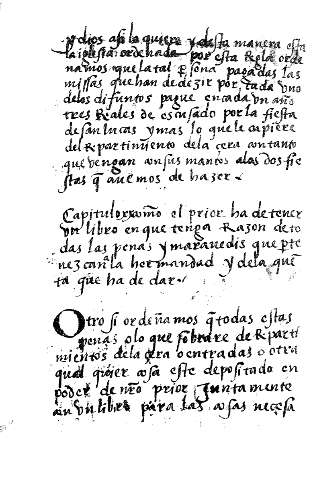 y dios asi la quiere y desta manera esta
la iglesia ordenada por esta Regla orde
namos que la tal persona pagadas las
missas que han de dezir por cada uno
de los difuntos pague en cada un año
tres Reales de escusado por la fiesta
de san lucas y mas lo que le cupiere
del Repartimiento de la cera con tanto
que vengan con sus mantos a las dos fie
stas q̃ avemos de hazer.
Capitulo el prior ha de tener
un libro en que tenga Razon de to
das las penas y maravedis que p̃te
nezcan a la hermandad y de la que̅
ta que ha de dar.
Otro si ordeñamos q̃ todas estas
penas o lo que sobrare de Reparti
mientos de la cera o entradas o otra
qual quier cosa este depositado en
poder de nr̃o prior Juntamente
con un libro para las cosas necesa